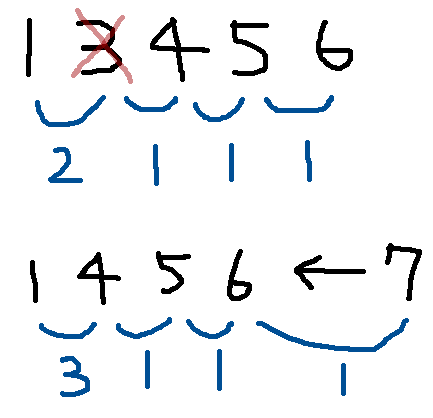 1 3 4 5 6
2 1 1 1
1 4 5 6 ← 7
3 1 1 1